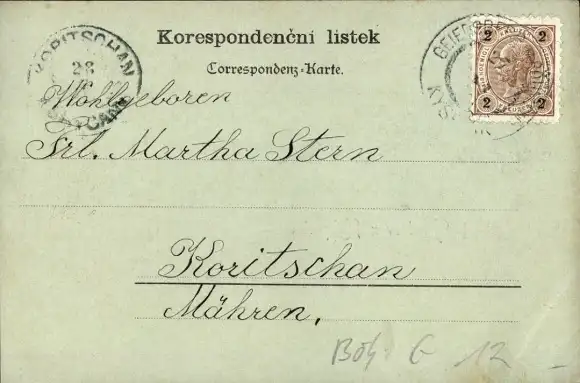 Korespondenční lístek
Correspondenz-Karte.
KORITSCHAN
28
Wohlgeboren
Frl. Martha Stern
Koritschan
Mähren.
2 2
2 2
Böh. G 12